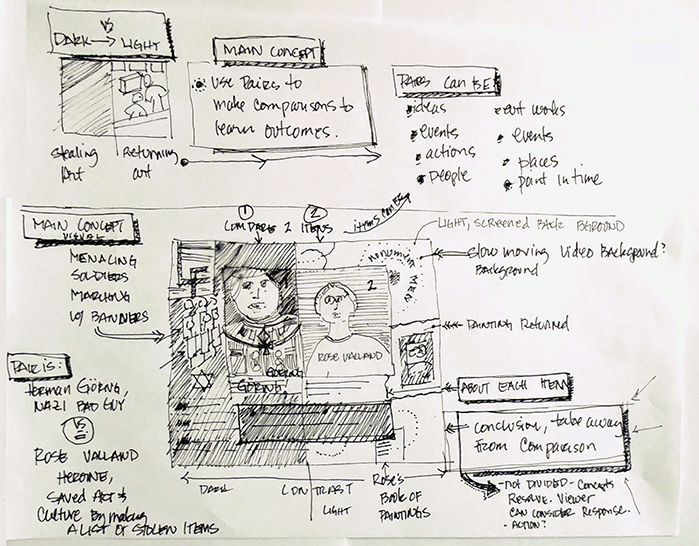 VS
DARK → LIGHT
Stealing
Art
Returning
art
MAIN CONCEPT
Use Pairs to
make comparisons to
learn outcomes.
PAIRS CAN BE
ideas
events
actions
People
art works
events
places
point in time
MAIN CONCEPT
VISUAL
MENACING
SOLDIERS
MARCHING
W/ BANNERS
PAIR IS:
Herman Göring,
NAZI BAD GUY
VS
ROSE VALLAND
HEROINE,
SAVED Art &
Culture By making
A LIST OF STOLEN ITEMS
1
2
COMPARE 2 ITEMS
items can
monument
MEN
2
GÖRING
GÖRING
ROSE VALLAND
DARK
CONTRAST
LIGHT
Rose's
Book of
PAINTINGS
LIGHT, SCREENED BACK BGROUND
Slow moving Video Background?
Background
PAINTING Returned
ABOUT EACH ITEM
Conclusion, take away
From Comparison
- NOT DIVIDED - Concepts
Resolve. Viewer
CAN CONSIDER Response.
- ACTION?